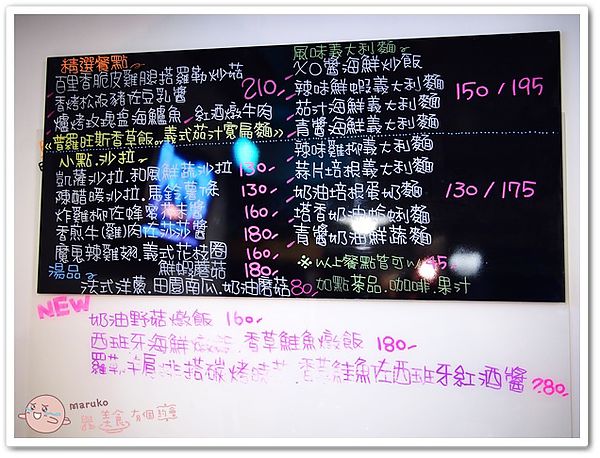 精選餐點
百里香脆皮雞腿搭羅勒炒菇
香烤松阪豬佐豆乳醬 210,
爐烤玫瑰鹽海鱸魚、紅酒燉牛肉
羅旺斯香草飯 義式茄汁寬扁麵
小點.沙拉
凱薩沙拉.和風鮮蔬沙拉 130
陳醋暖沙拉.馬鈴薯條 130,
炸雞柳佐蜂蜜芥末醬 160,
香煎牛(雞)肉佐莎莎醬 180
魔鬼辣雞翅.義式花枝圈 160
湯品 鮮蝦蘑菇 180
法式洋蔥.田園南瓜.奶油蘑菇 80
風味義大利麵
XO醬海鮮炒飯
辣味鮮蝦義大利麵 150 / 195
茄汁海鮮義大利麵
青醬海鮮義大利麵
辣味雞柳義大利麵
蒜片培根義大利麵
奶油培根蛋奶麵 130 / 175
塔香奶油蛤蜊麵
青醬奶油鮮蔬麵
※以上餐點皆可以 45
加點茶品.咖啡.果汁
NEW
奶油野菇燉飯 160
西班牙海鮮燉飯.香草鮭魚燉飯 180
羅勒 排搭碳烤時蔬.香草鮭魚佐西班牙紅酒醬 280
maruko
與美食有個約會